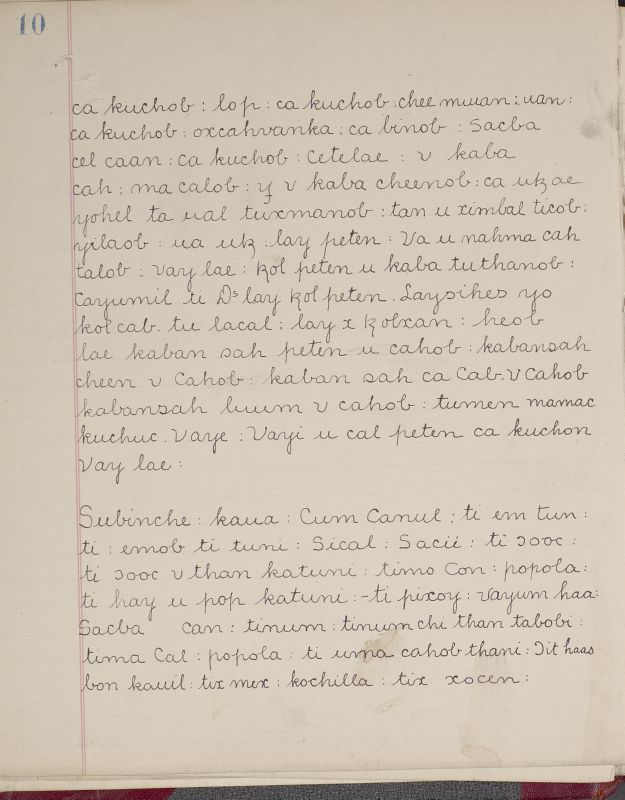 10
ca kuchob : lop : ca kuchob : chee muuan : uan :
ca kuchob : oxcahuanka : ca binob : Sacba
cel caan : ca kuchob : Cetelae : v kaba
cah : ma calob : y v kaba cheenob : ca uꜩ ae
yohel ta ual tuxmanob : tan u ximbal ticob :
yilaob : ua uꜩ : lay peten : Va u nahma cah
talob : Vay lae : kol peten u kaba tu thanob :
Cayumil ti Ds lay kol peten . Laysihes yo
kol cab . tu lacal : lay x kolxan : heob
lae kaban sah peten u cahob : kabansah
cheen v Cahob : kaban sah ca Cab . V Cahob
kabansah luum v cahob : tumen mamac
kuchuc . Vaye : Vayi u cal peten ca kuchon
Vay lae :
Subinche : kaua : Cum Canul : ti em tun :
ti : emob ti tuni : Sical : Sacii : ti ɔooc :
ti ɔooc v than katuni : timo Con : popola :
ti hay u pop katuni : - ti pixoy : Vayum haa :
Sacba can : tinum : tinum chi than tabobi :
tima Cal : popola : ti uma cahob thani : Ɔit haas
bon kauil : tix mex : kochilla : tix xocen :